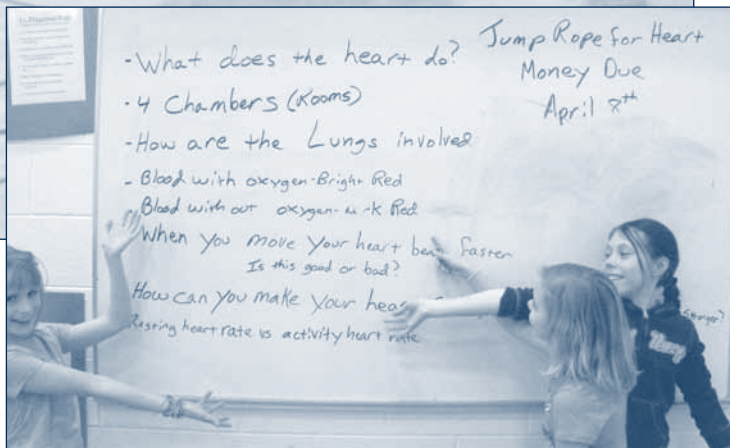 -What does the heart do?
·4 Chambers (Rooms)
-How are the Lungs involved
-Blood with oxygen-Bright Red
-Blood with out oxygen- Red
When you move your heart bea faster
Is this good or bad?
How can you make your hea stronger?
Resting heart rate vs activity heart rate
Jump Rope for Heart
Money Due
April 8th